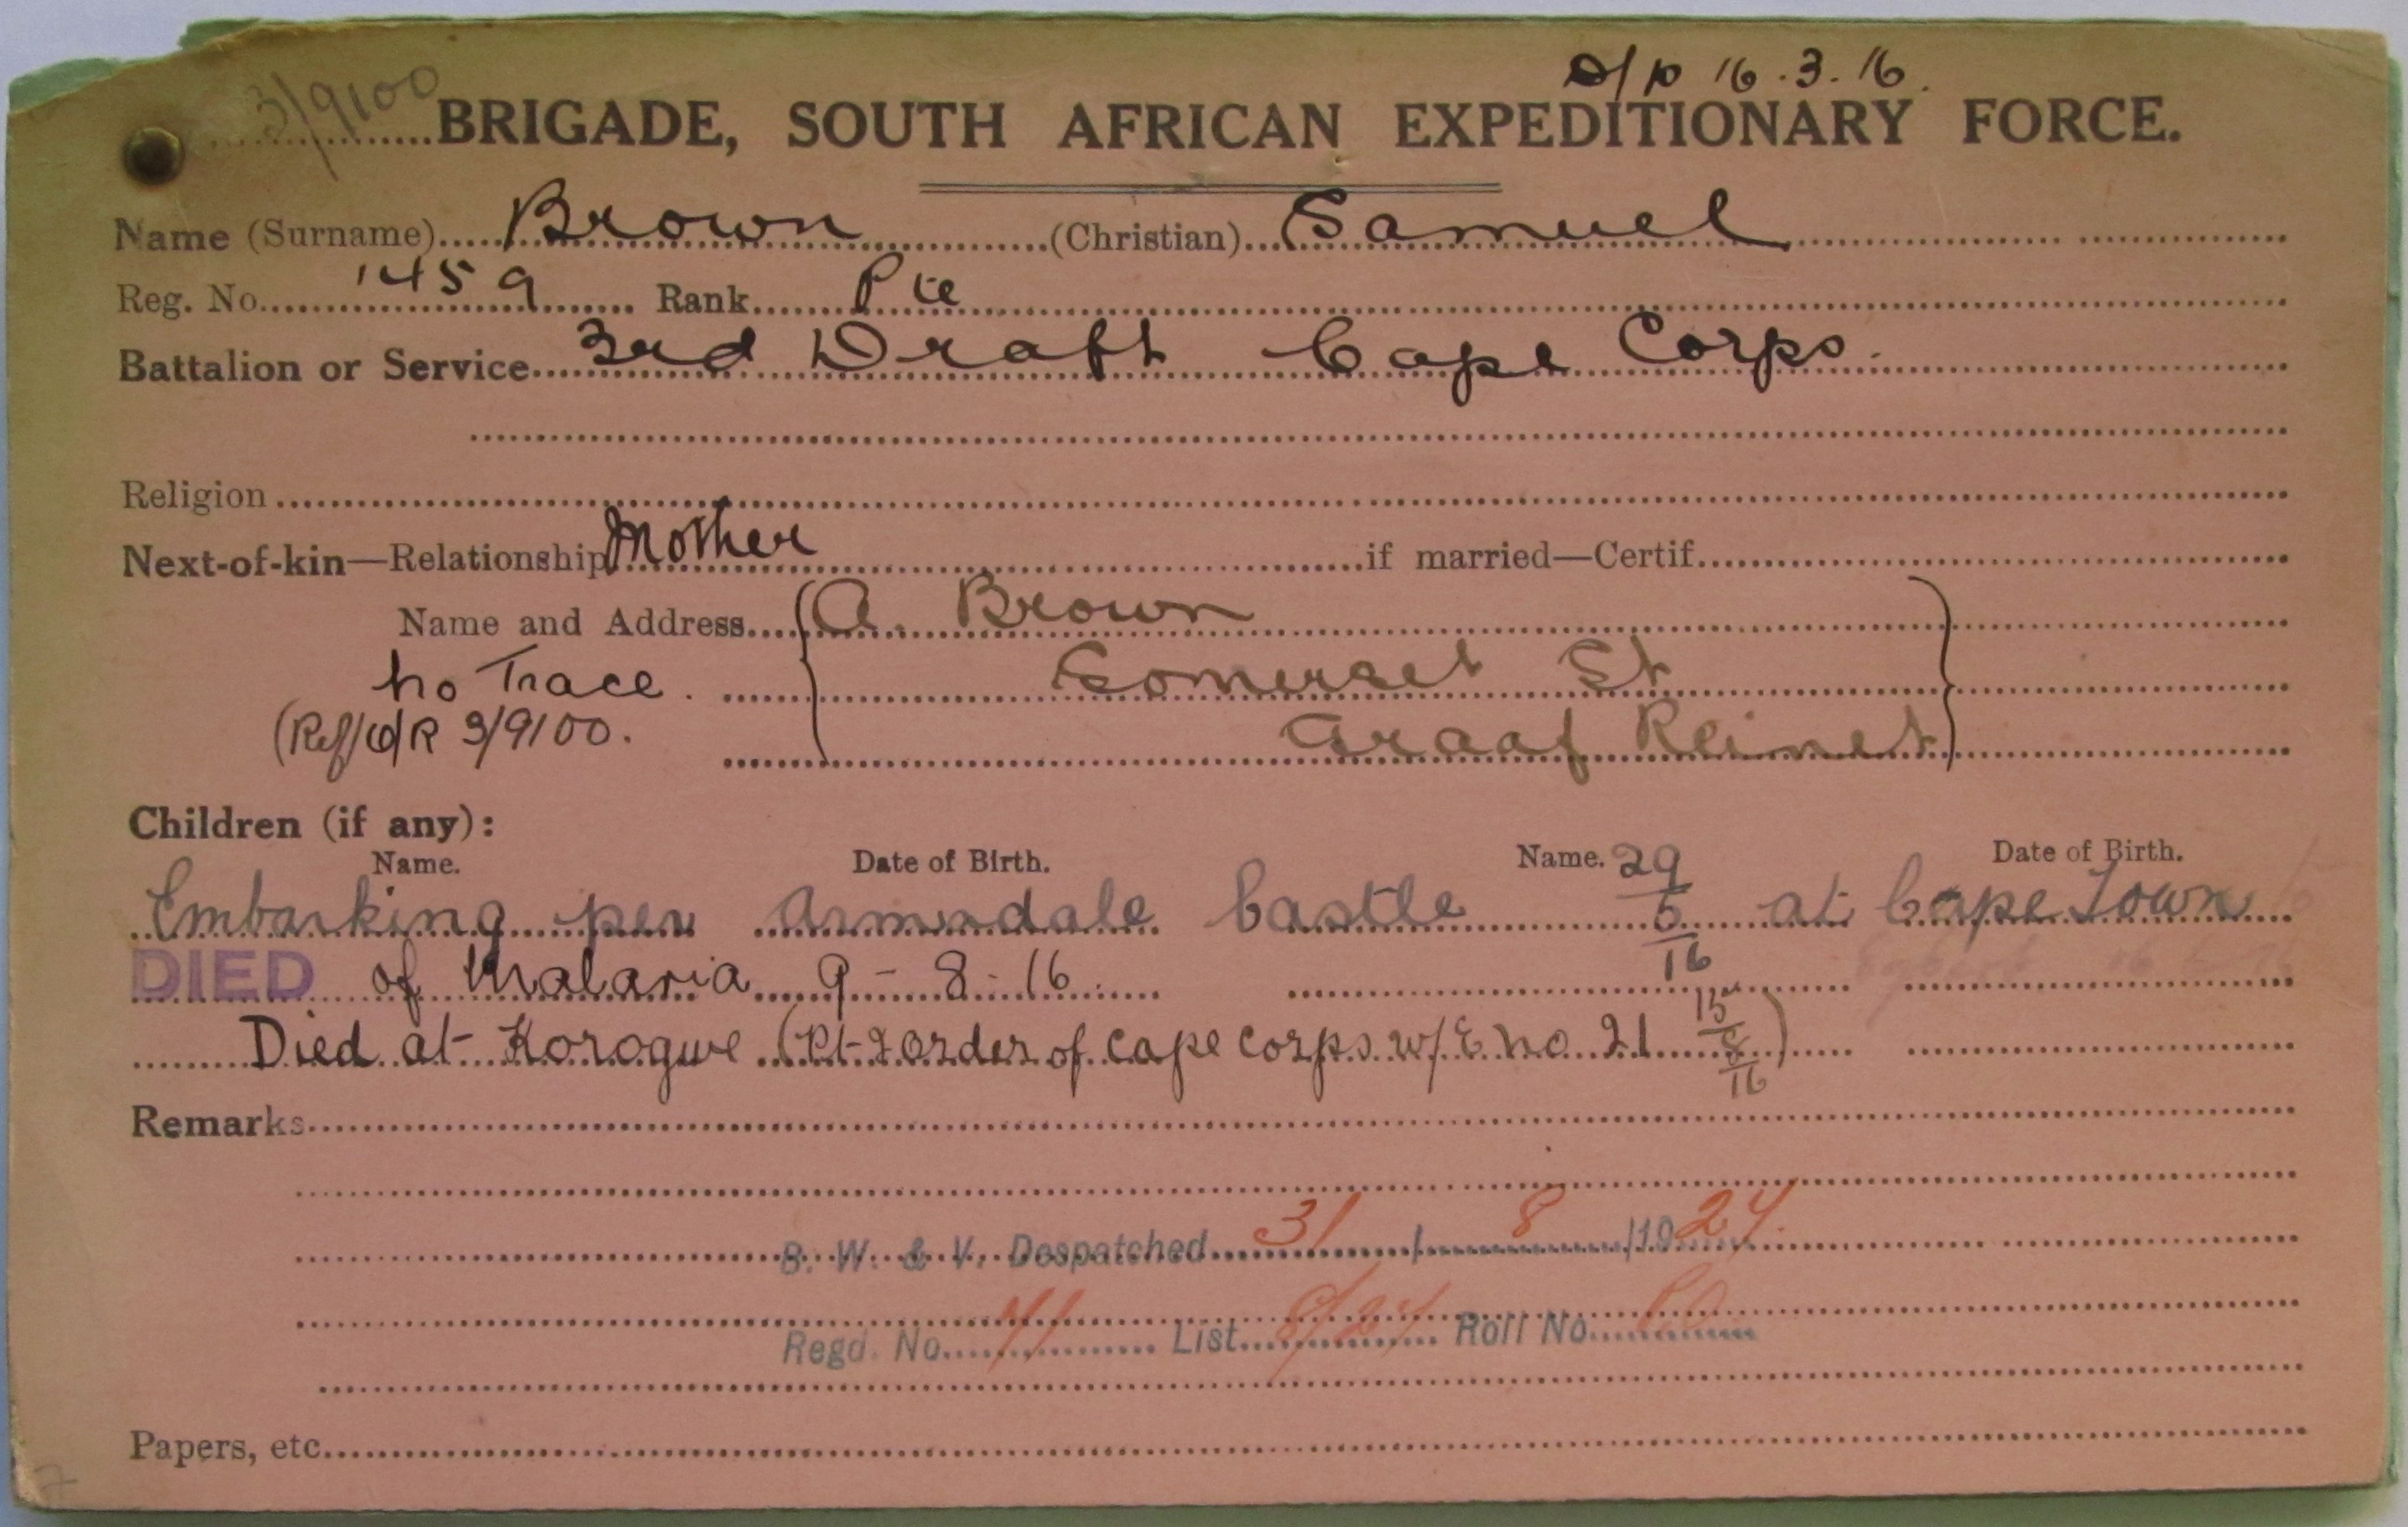 D/P 16.3.16.
3/9100
BRIGADE, SOUTH AFRICAN EXPEDITIONARY FORCE.
Name (Surname) Brown (Christian) Samuel
Reg. No. 1459 Rank Pte
Battalion or Service 3rd Draft Cape Corps.
Religion
Next-of-kin—Relationship Mother if married—Certif.
Name and Address A. Brown
No Trace. Somerset St
(Ref/O/R 3/9100. Graaf Reinet
Children (if any):
Name. Date of Birth. Name. Date of Birth.
Embarking per Armadale Castle 29/5/16 at Cape Town
DIED of Malaria 9-8-16
Died at Korogwe (Pt 2 order of Cape Corps w/E no. 21 15/8/16)
Remarks
B. W. & V. Despatched 31/8/1924.
Regd. No. 41 List 8/24 Roll No.
Papers, etc.